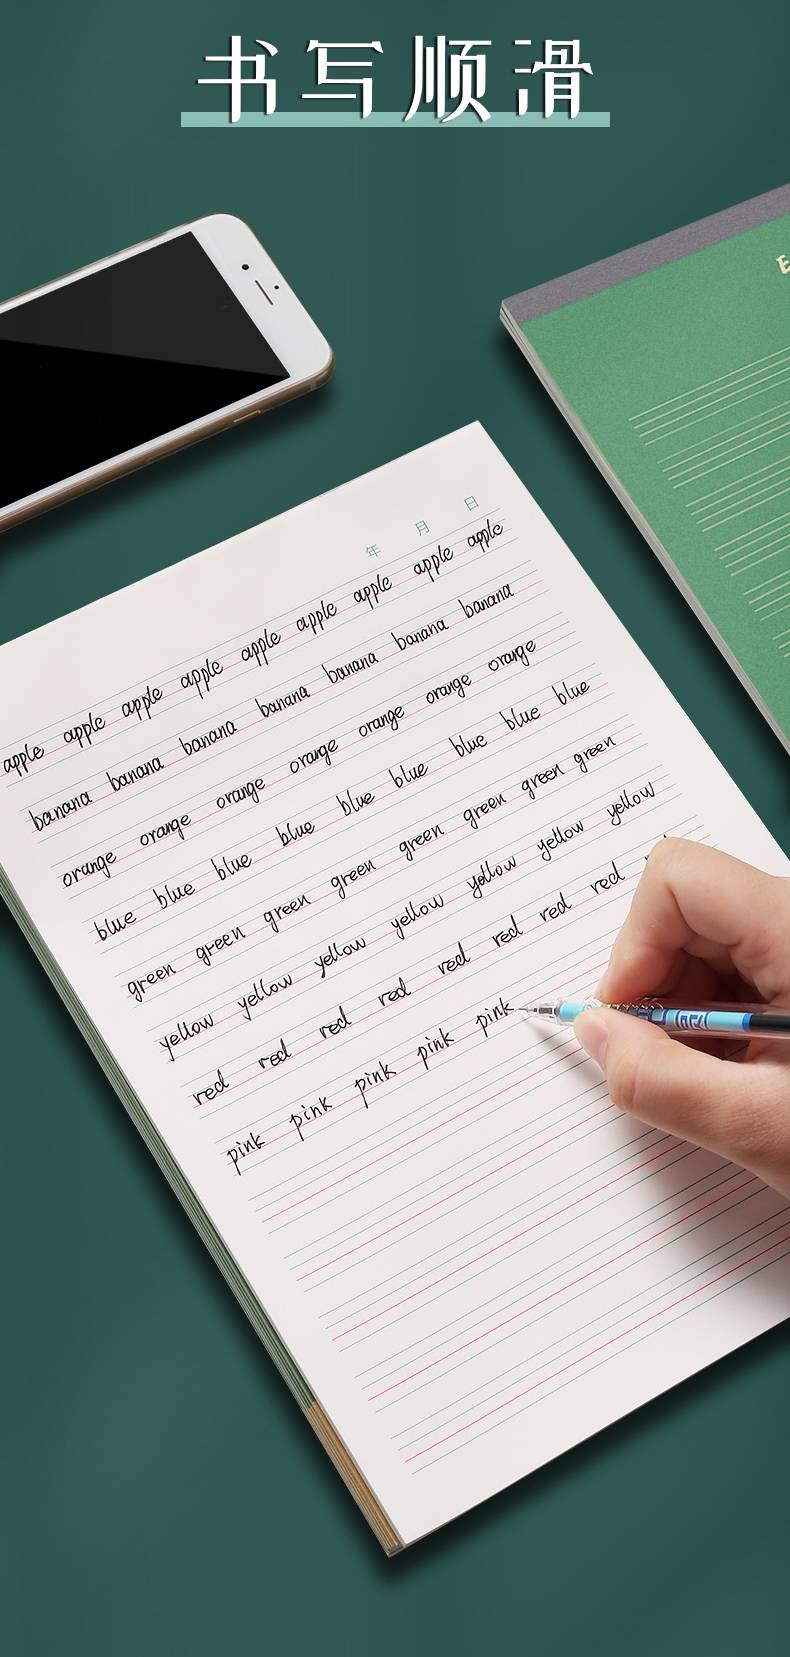 书写顺滑
年 月 日
apple apple apple apple apple apple apple apple apple
banana banana banana banana banana banana banana
orange orange orange orange orange orange orange
blue blue blue blue blue blue blue blue blue
green green green green green green green green
yellow yellow yellow yellow yellow yellow yellow
red red red red red red red red
pink pink pink pink pink